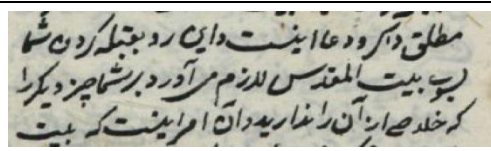 مطلق ذکر و دعا اینست و این رو بقبله کردن شما
بسوی بیت المقدس لازم می آورد بر شما چیز دیکر را
که خلاصی از آن را ندارید و آن امر اینست که بیت